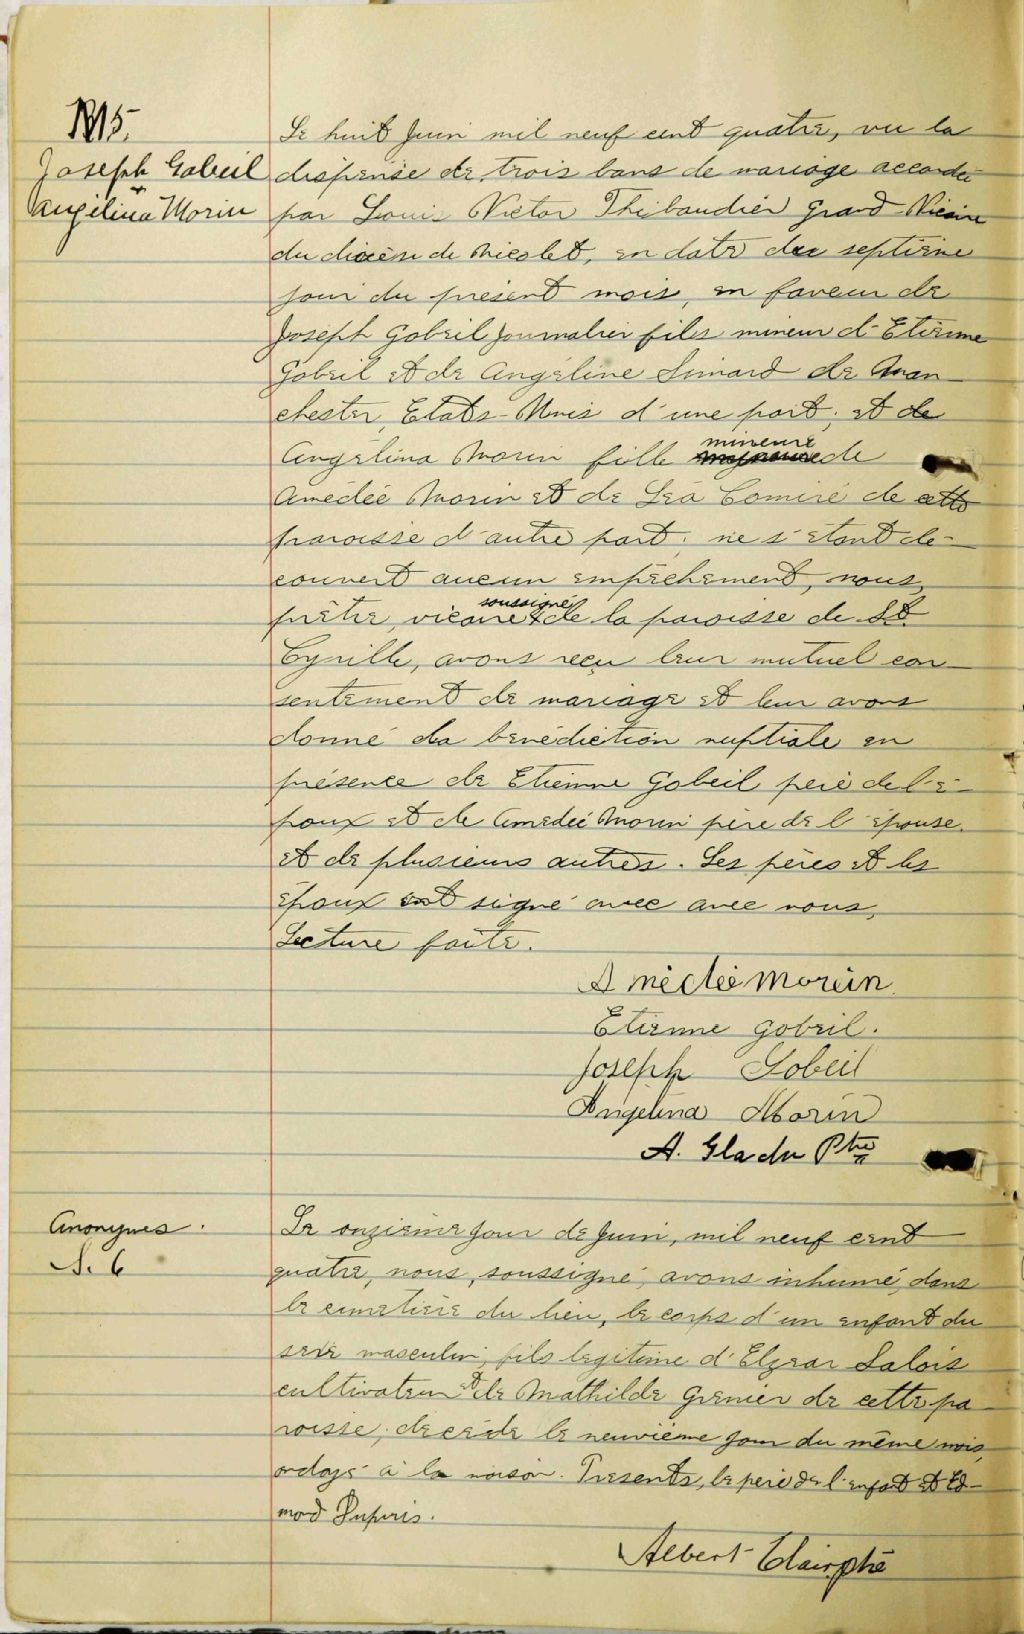 M5.
Joseph Gobeil
&
Angélina Morin
Le huit Juin mil neuf cent quatre, vu la
dispense de trois bans de mariage accordée
par Louis Victor Thibaudier Grand-Vicaire
du diocèse de Nicolet, en date du septième
jour du présent mois, en faveur de
Joseph Gobeil journalier fils mineur d'Etienne
Gobeil et de Angéline Simard de Man-
chester, Etats-Unis d'une part; et de
Angélina Morin fille mineure de
Amédée Morin et de Léa Comiré de cette
paroisse d'autre part; ne s'étant dé-
couvert aucun empêchement, nous,
prêtre, vicaire soussigné de la paroisse de St.
Cyrille, avons reçu leur mutuel con-
sentement de mariage et leur avons
donné la bénédiction nuptiale en
présence de Etienne Gobeil père de l'é-
poux et de Amedée Morin père de l'épouse.
et de plusieurs autres. Les pères et les
époux ont signé avec avec nous,
Lecture faite.
Amédée Morin.
Etienne Gobeil.
Joseph Gobeil
Angelina Morin
A. Gladu Ptre
Anonymes.
S. 6
Le onzième jour de Juin, mil neuf cent
quatre, nous, soussigné, avons inhumé, dans
le cimetière du lieu, le corps d'un enfant du
sexe masculin, fils legitime d'Elzear Salois
cultivateur et de Mathilde Grenier de cette pa-
roisse, décédé le neuvième jour du même mois,
ondoyé à la maison. Présents, le père de l'enfant et Ed-
mond Dupuis.
Albert Clair, ptre